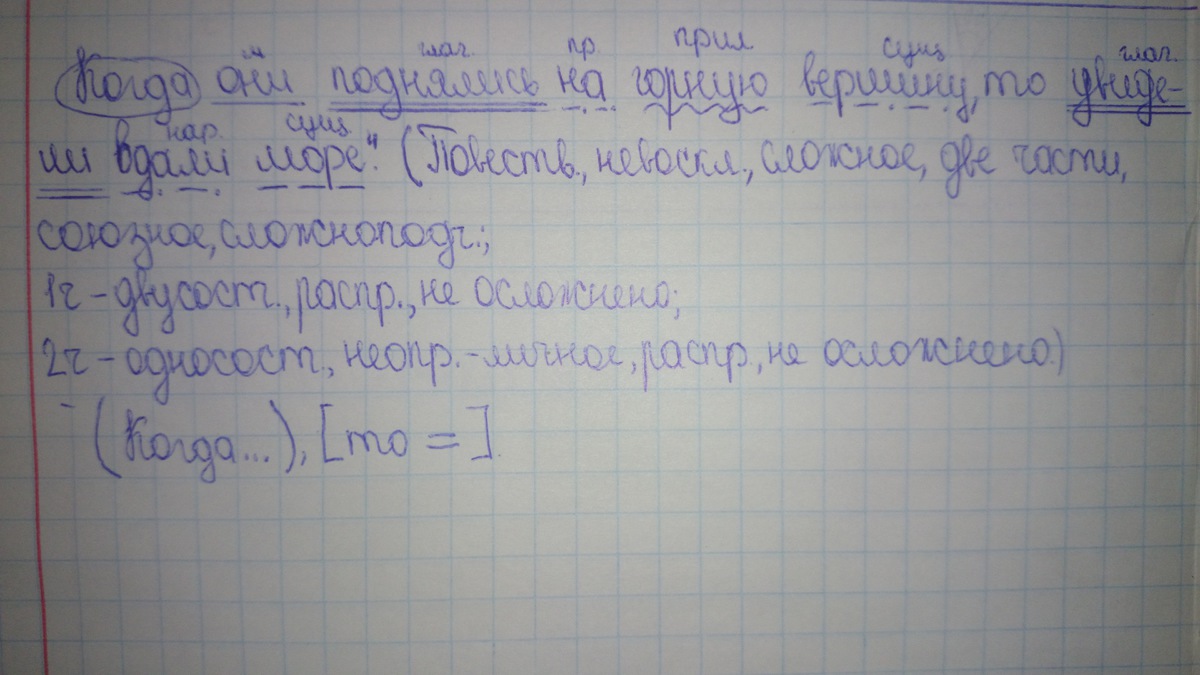 м. глаг. пр. прил сущ глаг.
Когда они поднялись на горную вершину, то увиде-
нар. сущ
ли вдали море". (Повеств., невоскл., сложное, две части,
союзное, сложноподч.;
1ч - двусост., распр., не осложнено;
2ч - односост., неопр.-личное, распр., не осложнено.)
(Когда...), [то = ].